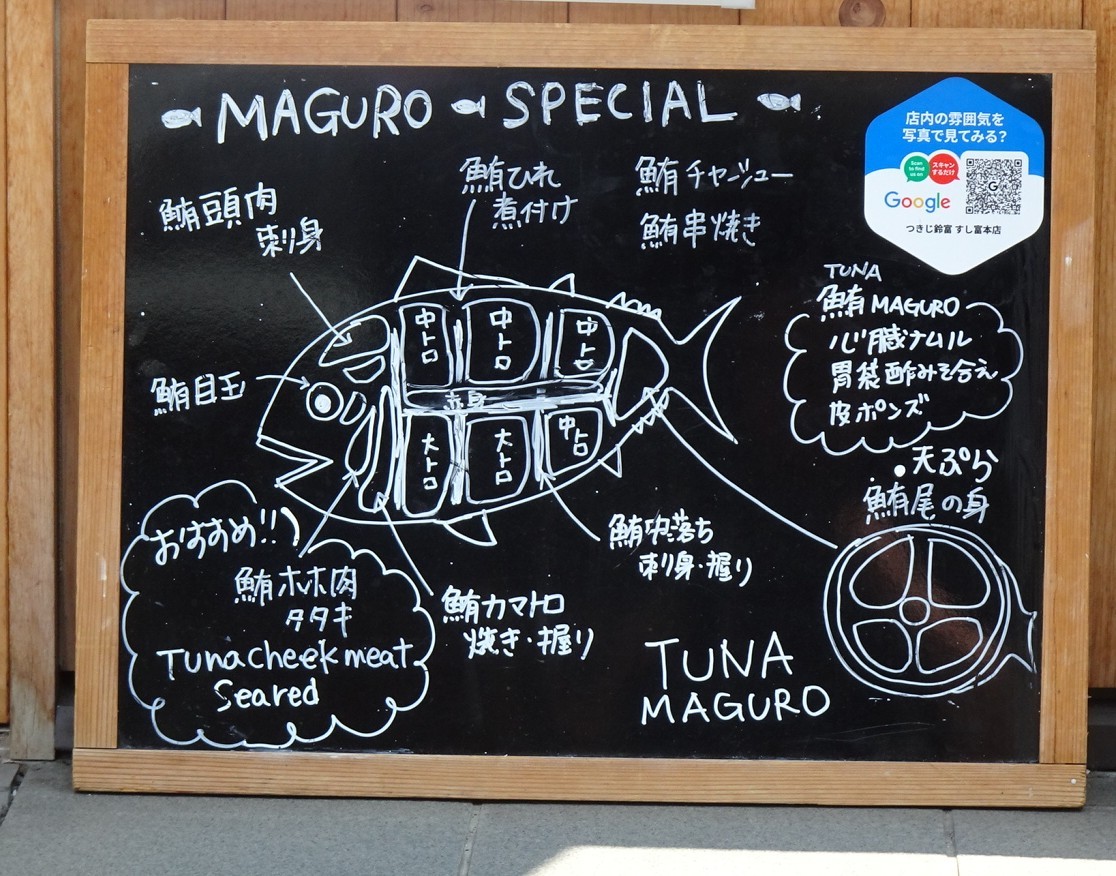 MAGURO SPECIAL
鮪頭肉
刺身
鮪ひれ
煮付け
鮪チャーシュー
鮪串焼き
店内の雰囲気を
写真で見てみる?
Scan
to find
us on
スキャン
するだけ
Google
G
つきじ鈴富 すし富本店
TUNA
鮪 MAGURO
心臓ナムル
胃袋酢みそ合え
皮ポンズ
鮪目玉
中トロ
中トロ
中トロ
赤身
大トロ
大トロ
中トロ
・天ぷら
鮪尾の身
おすすめ!!
鮪ホホ肉
タタキ
Tuna cheek meat
Seared
鮪カマトロ
焼き・握り
鮪中落ち
刺身・握り
TUNA
MAGURO